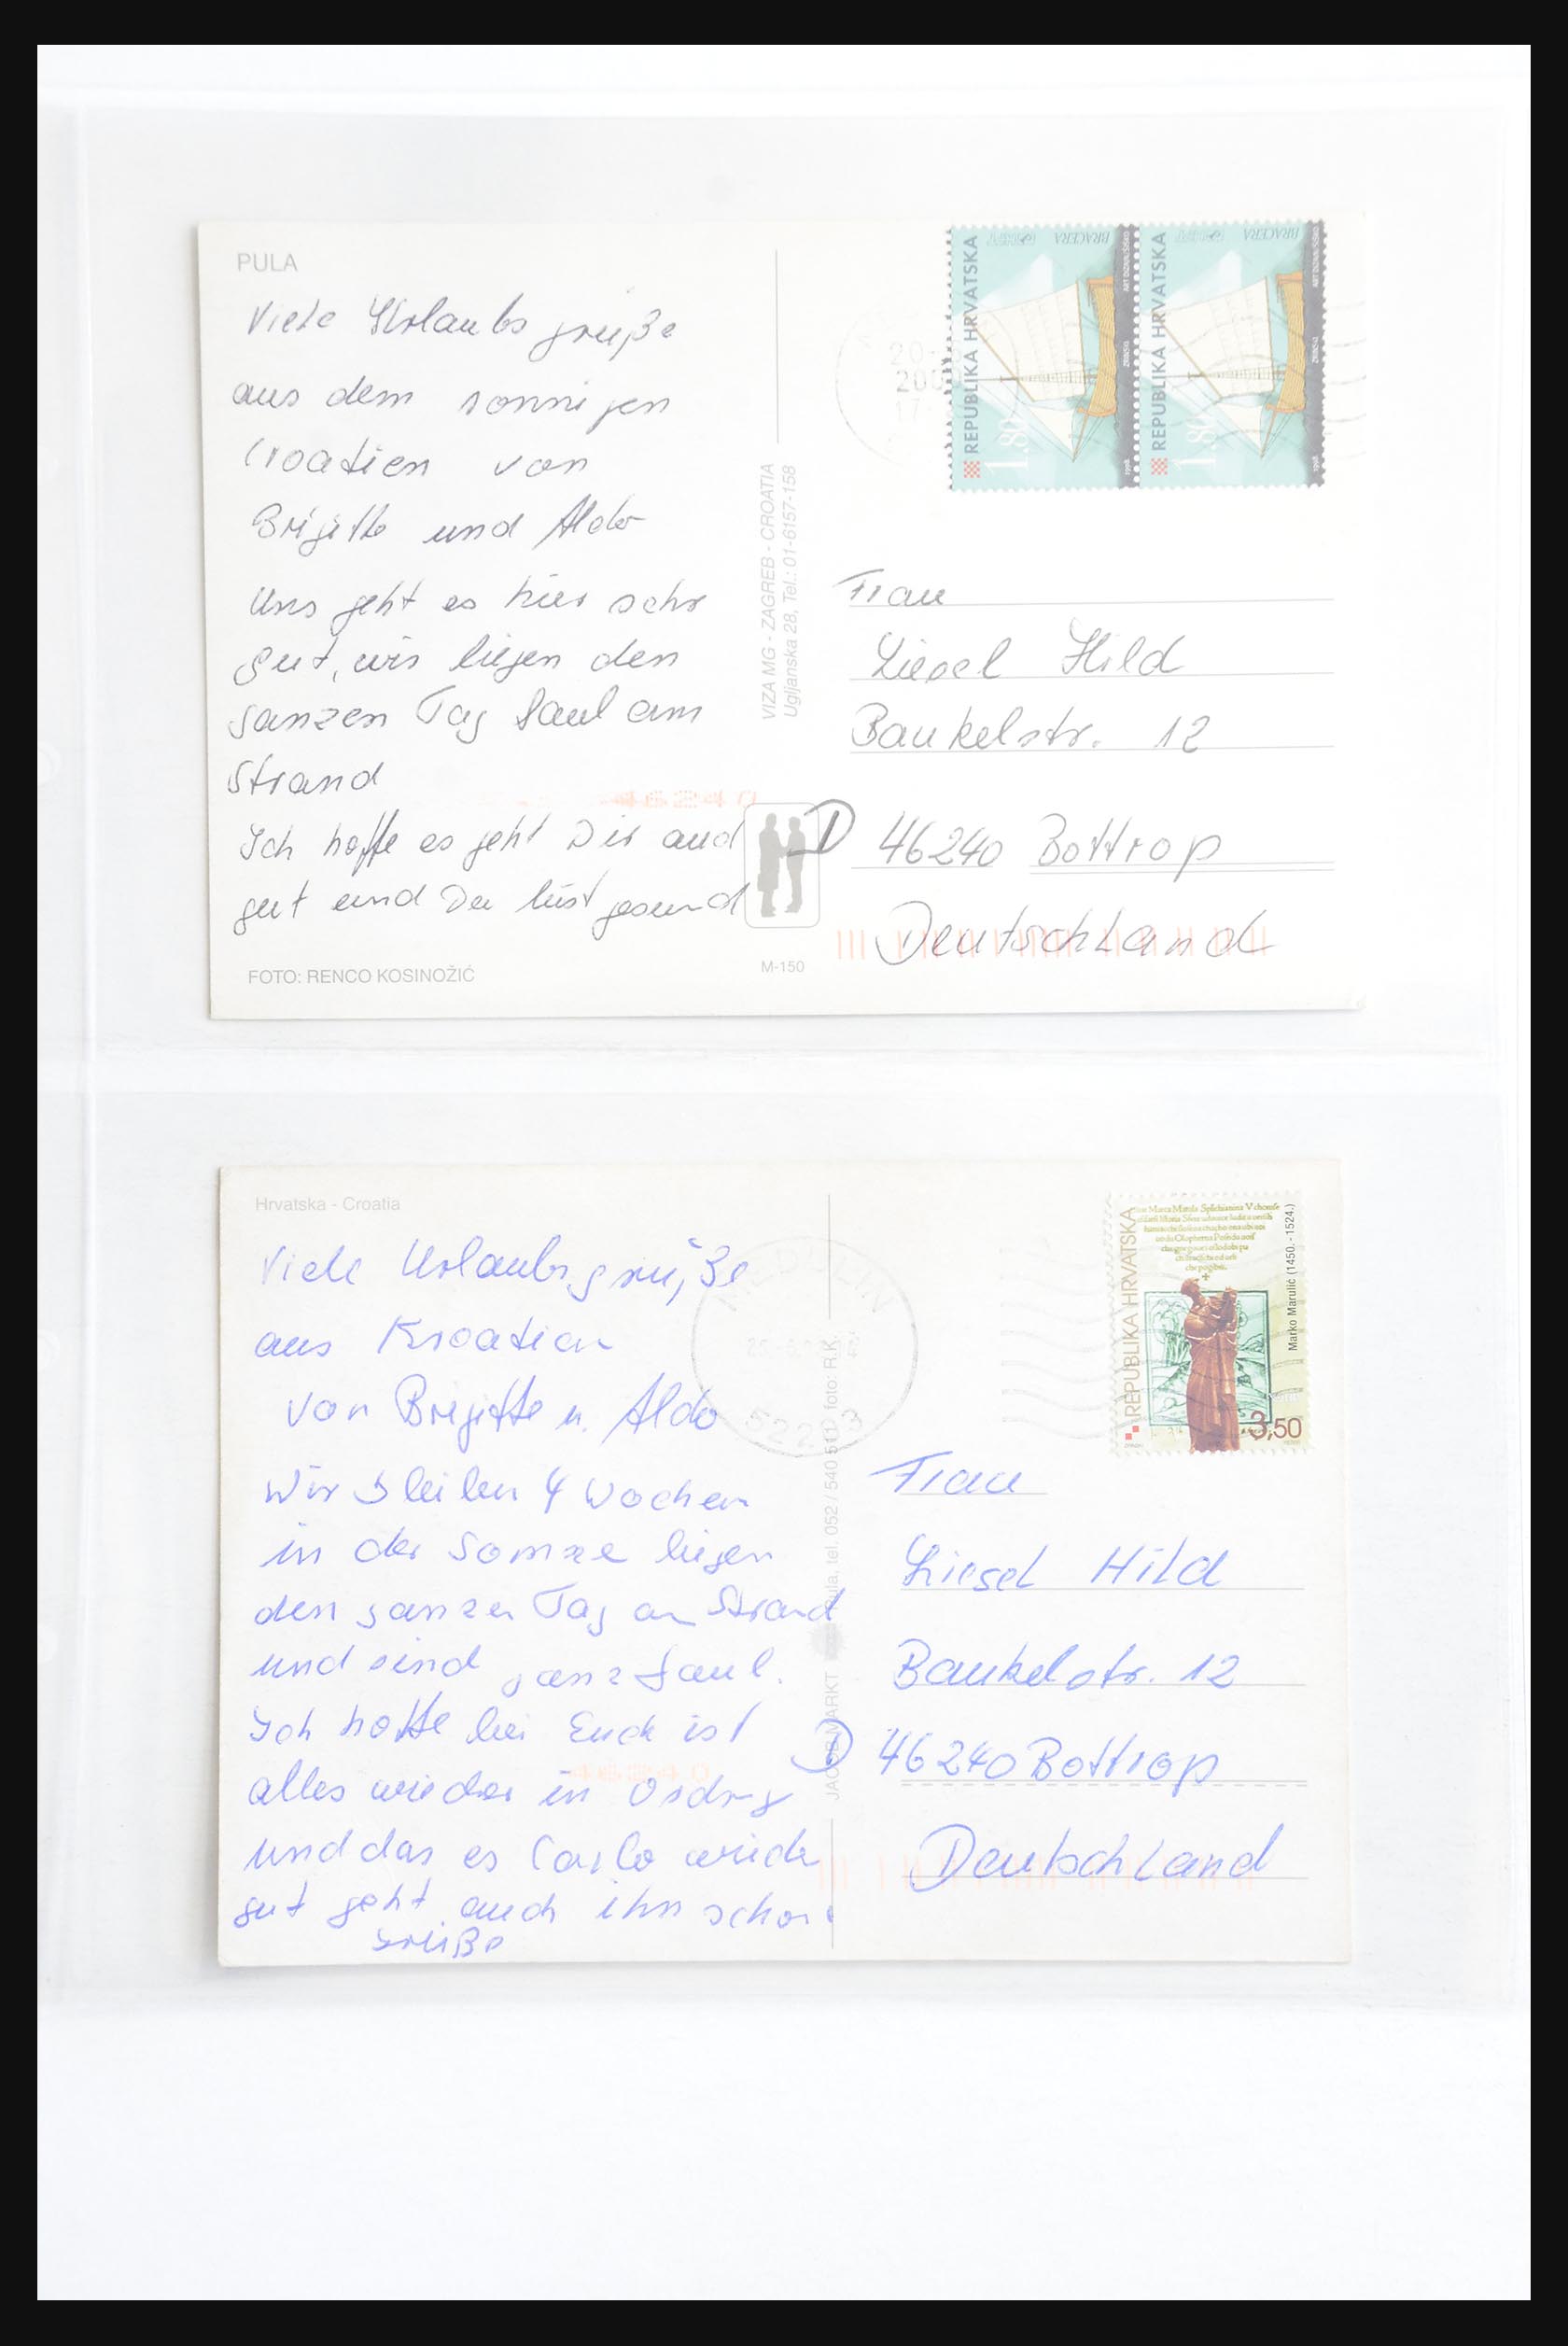 PULA
Viele Urlaubs grüße
aus dem sonnigen
Croatien von
Brigitte und Aldo
Uns geht es hier sehr
gut, wir liegen den
ganzen Tag faul am
Strand
Ich hoffe es geht Dir auch
gut und Du bist gesund
FOTO: RENCO KOSINOŽIĆ
VIZA MG - ZAGREB - CROATIA
Ugljanska 28, Tel.: 01-6157-158
M-150
REPUBLIKA HRVATSKA
BRACERA
1.80
1998
ZRINSKI
REPUBLIKA HRVATSKA
BRACERA
1.80
1998
ZRINSKI
20
200
17
Frau
Liesel Hild
Baukelstr. 12
D 46240 Bottrop
Deutschland
46240
Hrvatska - Croatia
Viele Urlaubsgrüße
aus Kroatien
von Brigitte u. Aldo
Wir bleiben 4 Wochen
in der Sonne liegen
den ganzen Tag am Strand
und sind ganz faul.
Ich hoffe bei Euch ist
alles wieder in Ordng
und das es Carlo wieder
gut geht auch ihm schöne
Grüße
JACOB MARKT
tel. 052 / 540 511 foto: R.K.
REPUBLIKA HRVATSKA
Marko Marulić (1450.-1524.)
3,50
Frau
Liesel Hild
Baukelstr. 12
D 46240 Bottrop
Deutschland
46240